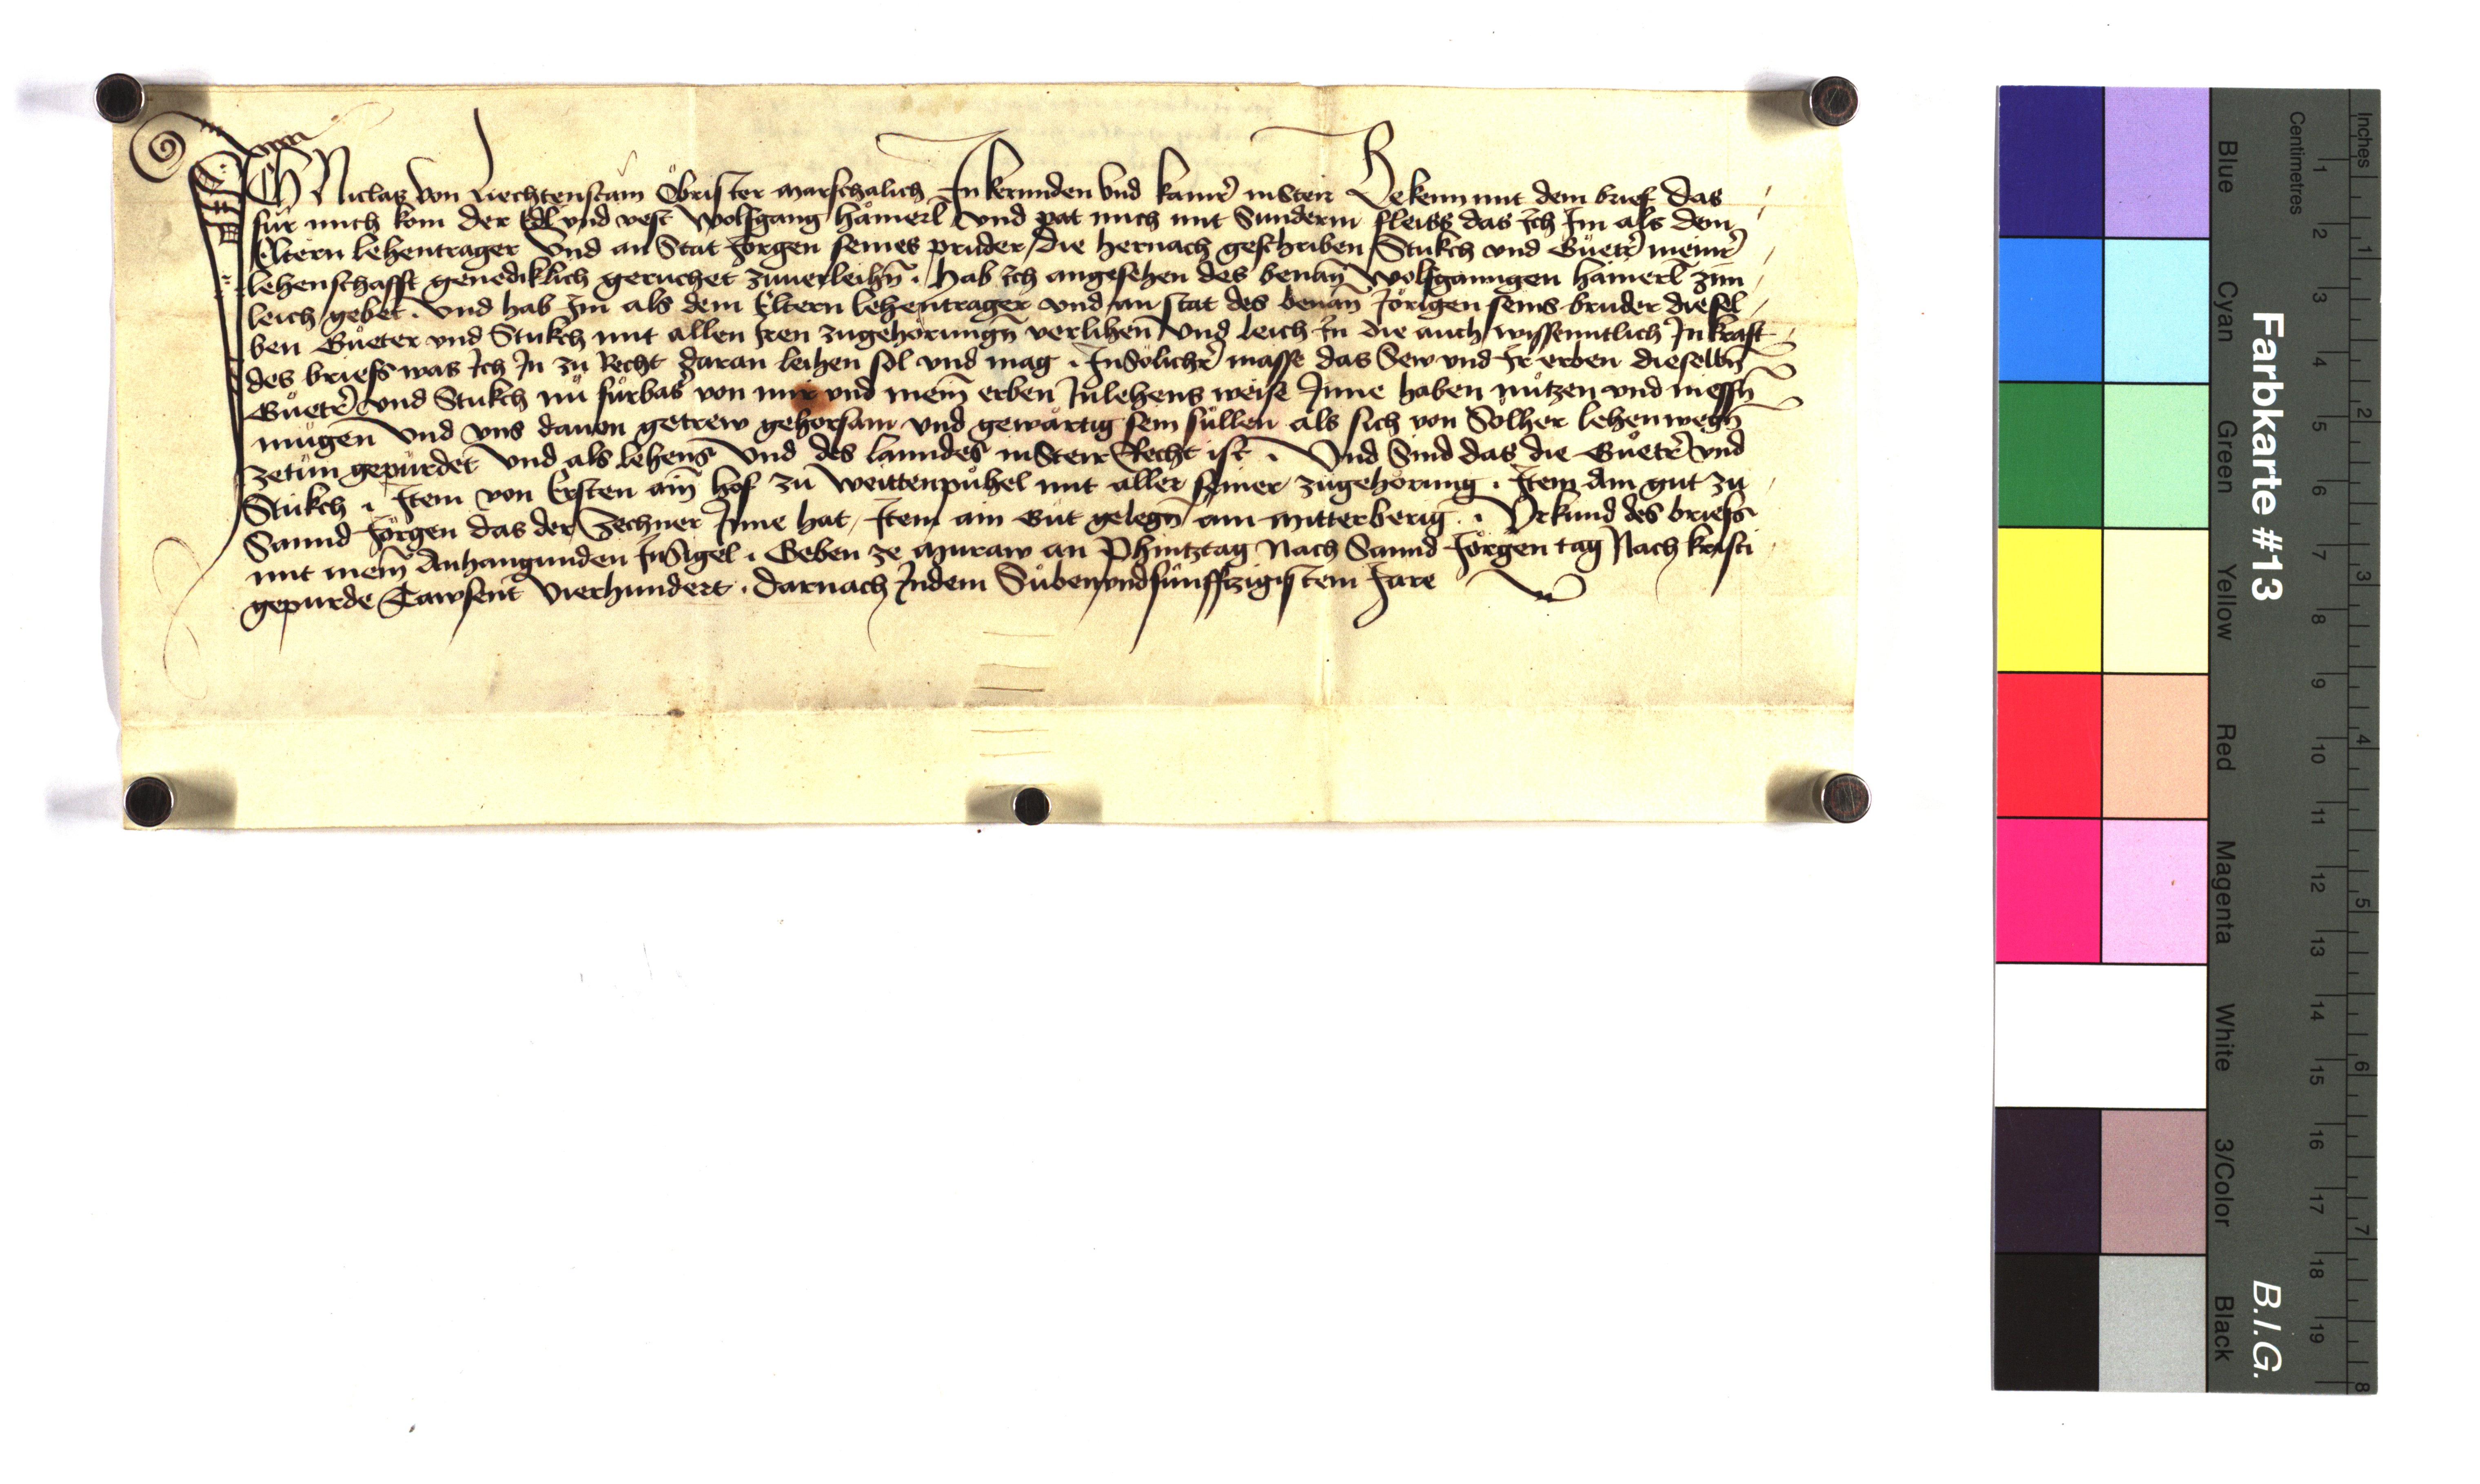 ICH Niclas von Liechtenstain Obrister marschalich In kernnden vnd kamrer in Steir Bekenn mit dem brief das
für mich kom der Edl vnd vest Wolfgang hämerl vnd pat mich mit Sunderm fleiss das Ich Im als dem
Eltern lehentrager vnd an Stat Jorgen seines pruder / die hernach geschriben Stukch vnd Güetr̄ meinr̄
lehenschafft genediklich geruchet zuuerleihn̄ . hab Ich angesehen des benan̄ Wolfganngen hämerl zim
leich gebet . vnd hab Im als dem Eltern lehentrager vnd an stat des benan̄ Jörigen seins bruder diesel
ben Güeter vnd Stukch mit allen Iren zugehörungn̄ verlihen vnd leich In die auch wissenntlich In kraft
des briefs was Ich In zu Recht daran leihen sol vnd mag . In Sölichr̄ masse das Sew vnd Ir erben dieselbn̄
Güetr̄ vnd Stukch nu fürbas von mir vnd mein̄ erben In lehens weise Inne haben nützen vnd niessn̄
mügen vnd vns dauon getrew gehorsam vnd gewärtig sein süllen als sich von Solher lehen wegn̄
zetün gepürdet vnd als lehens vnd des lanndes in Steir Recht ist . Vnd Sind das die Güetr̄ vnd
Stukch . Item von Ersten ain̄ hof zu Weittenpühel mit aller seiner zugehörung . Item Ain gut zu
Sannd Jörgen das der Zechner Inne hat / Item ain Gut gelegn̄ am Mitterberig . Vrkund des briefs
mit mein̄ Anhangunden InSigel . Geben ze Muraw an Phintztag Nach Sannd Jörgen tag Nach kristi
gepurde Tawsent Vierhundert . darnach In dem Süben vnd fünfftzigistem Jare
Farbkarte #13
B.I.G.
Blue
Cyan
Green
Yellow
Red
Magenta
White
3/Color
Black
Centimetres
1 2 3 4 5 6 7 8 9 10 11 12 13 14 15 16 17 18 19
Inches
1 2 3 4 5 6 7 8